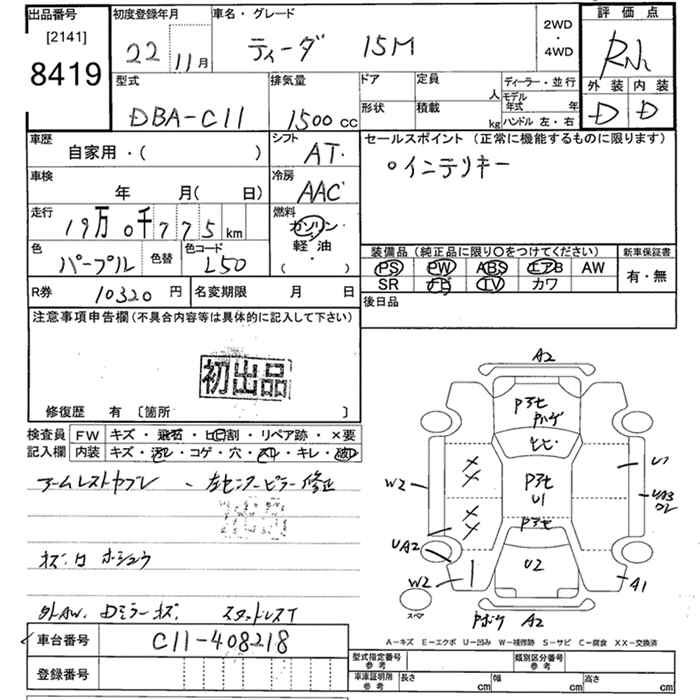 出品番号
[2141]
8419
初度登録年月
22 11月
車名・グレード
ティーダ 15M
2WD
・
4WD
評価点
外装 内装
D D
型式
DBA-C11
排気量
1500cc
ドア
定員
人
形状
積載
kg
ディーラー・並行
モデル年式 年
ハンドル 左・右
車歴
自家用・( )
シフト
AT
セールスポイント (正常に機能するものに限ります)
○インテリキー
車検
年 月( 日)
冷房
AAC
走行
19万0千775km
燃料
ガソリン・
軽油
( ・ )
色
パープル
色替
色コード
L50
装備品(純正品に限り○をつけてください)
PS PW ABS エアB AW
SR TV カワ
新車保証書
有・無
R券 10320円
名変期限 月 日
後日品
注意事項申告欄(不具合内容等は具体的に記入して下さい)
初出品
修復歴 有 〔箇所 〕
検査員
記入欄
FW キズ・飛石・ヒビ割・リペア跡・×要
内装 キズ・汚レ・コゲ・穴・スレ・キレ・破レ
アームレストヤブレ - 左センターピラー修正
外AW. Dミラーキズ. スタッドレスT
車台番号 C11-408218
登録番号
A2
U1
W2
UA3
UA2
W2
U2
A1
スペア
A2
A-キズ E-エクボ U-凹み W-補修跡 S-サビ C-腐食 XX-交換済
型式指定番号
参考
類別区分番号
参考
車庫証明所
参考
長さ cm
幅 cm
高さ cm